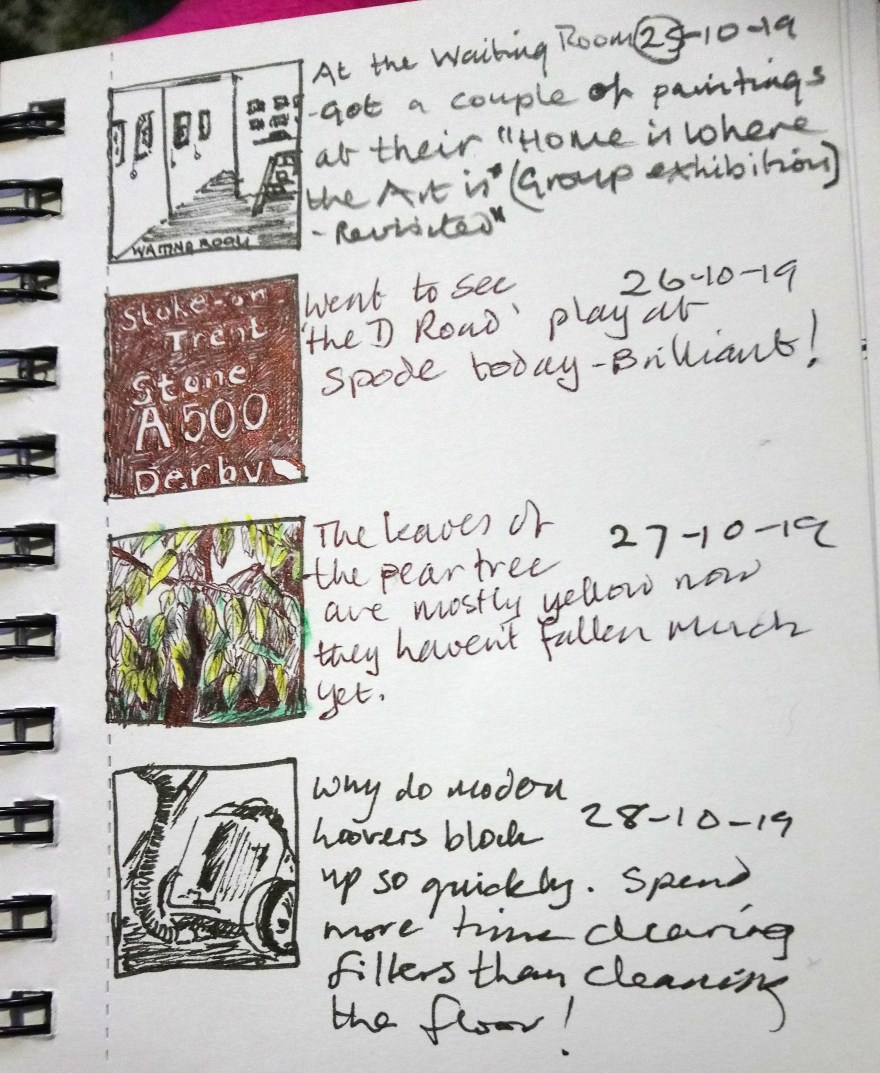 At the Waiting Room 25-10-19
-Got a couple of paintings
at their "Home is where
the Art is" (Group exhibition)
- Revisited"
WAITING ROOM
Went to see 26-10-19
'the D Road' play at
Spode today - Brilliant!
Stoke-on
Trent
Stone
A500
Derby
The leaves of 27-10-19
the pear tree
are mostly yellow now
they havent fallen much
yet.
Why do modern
hoovers block 28-10-19
up so quickly. Spend
more time clearing
filters than cleaning
the floor!